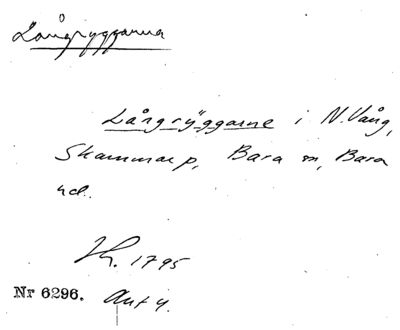 Långryggarna
Långrÿggarne i N. Vång,
Skammarp, Bara sn, Bara
hd.
1795
Nr 6296.